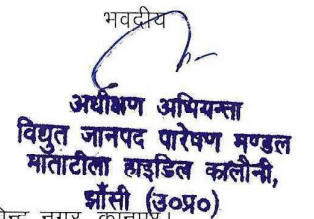 भवदीय
अधीक्षण अभियन्ता
विद्युत जानपद पारेषण मण्डल
माताटीला हाइडिल कालौनी,
झाँसी (उ०प्र०)
नगर, कानपुर।